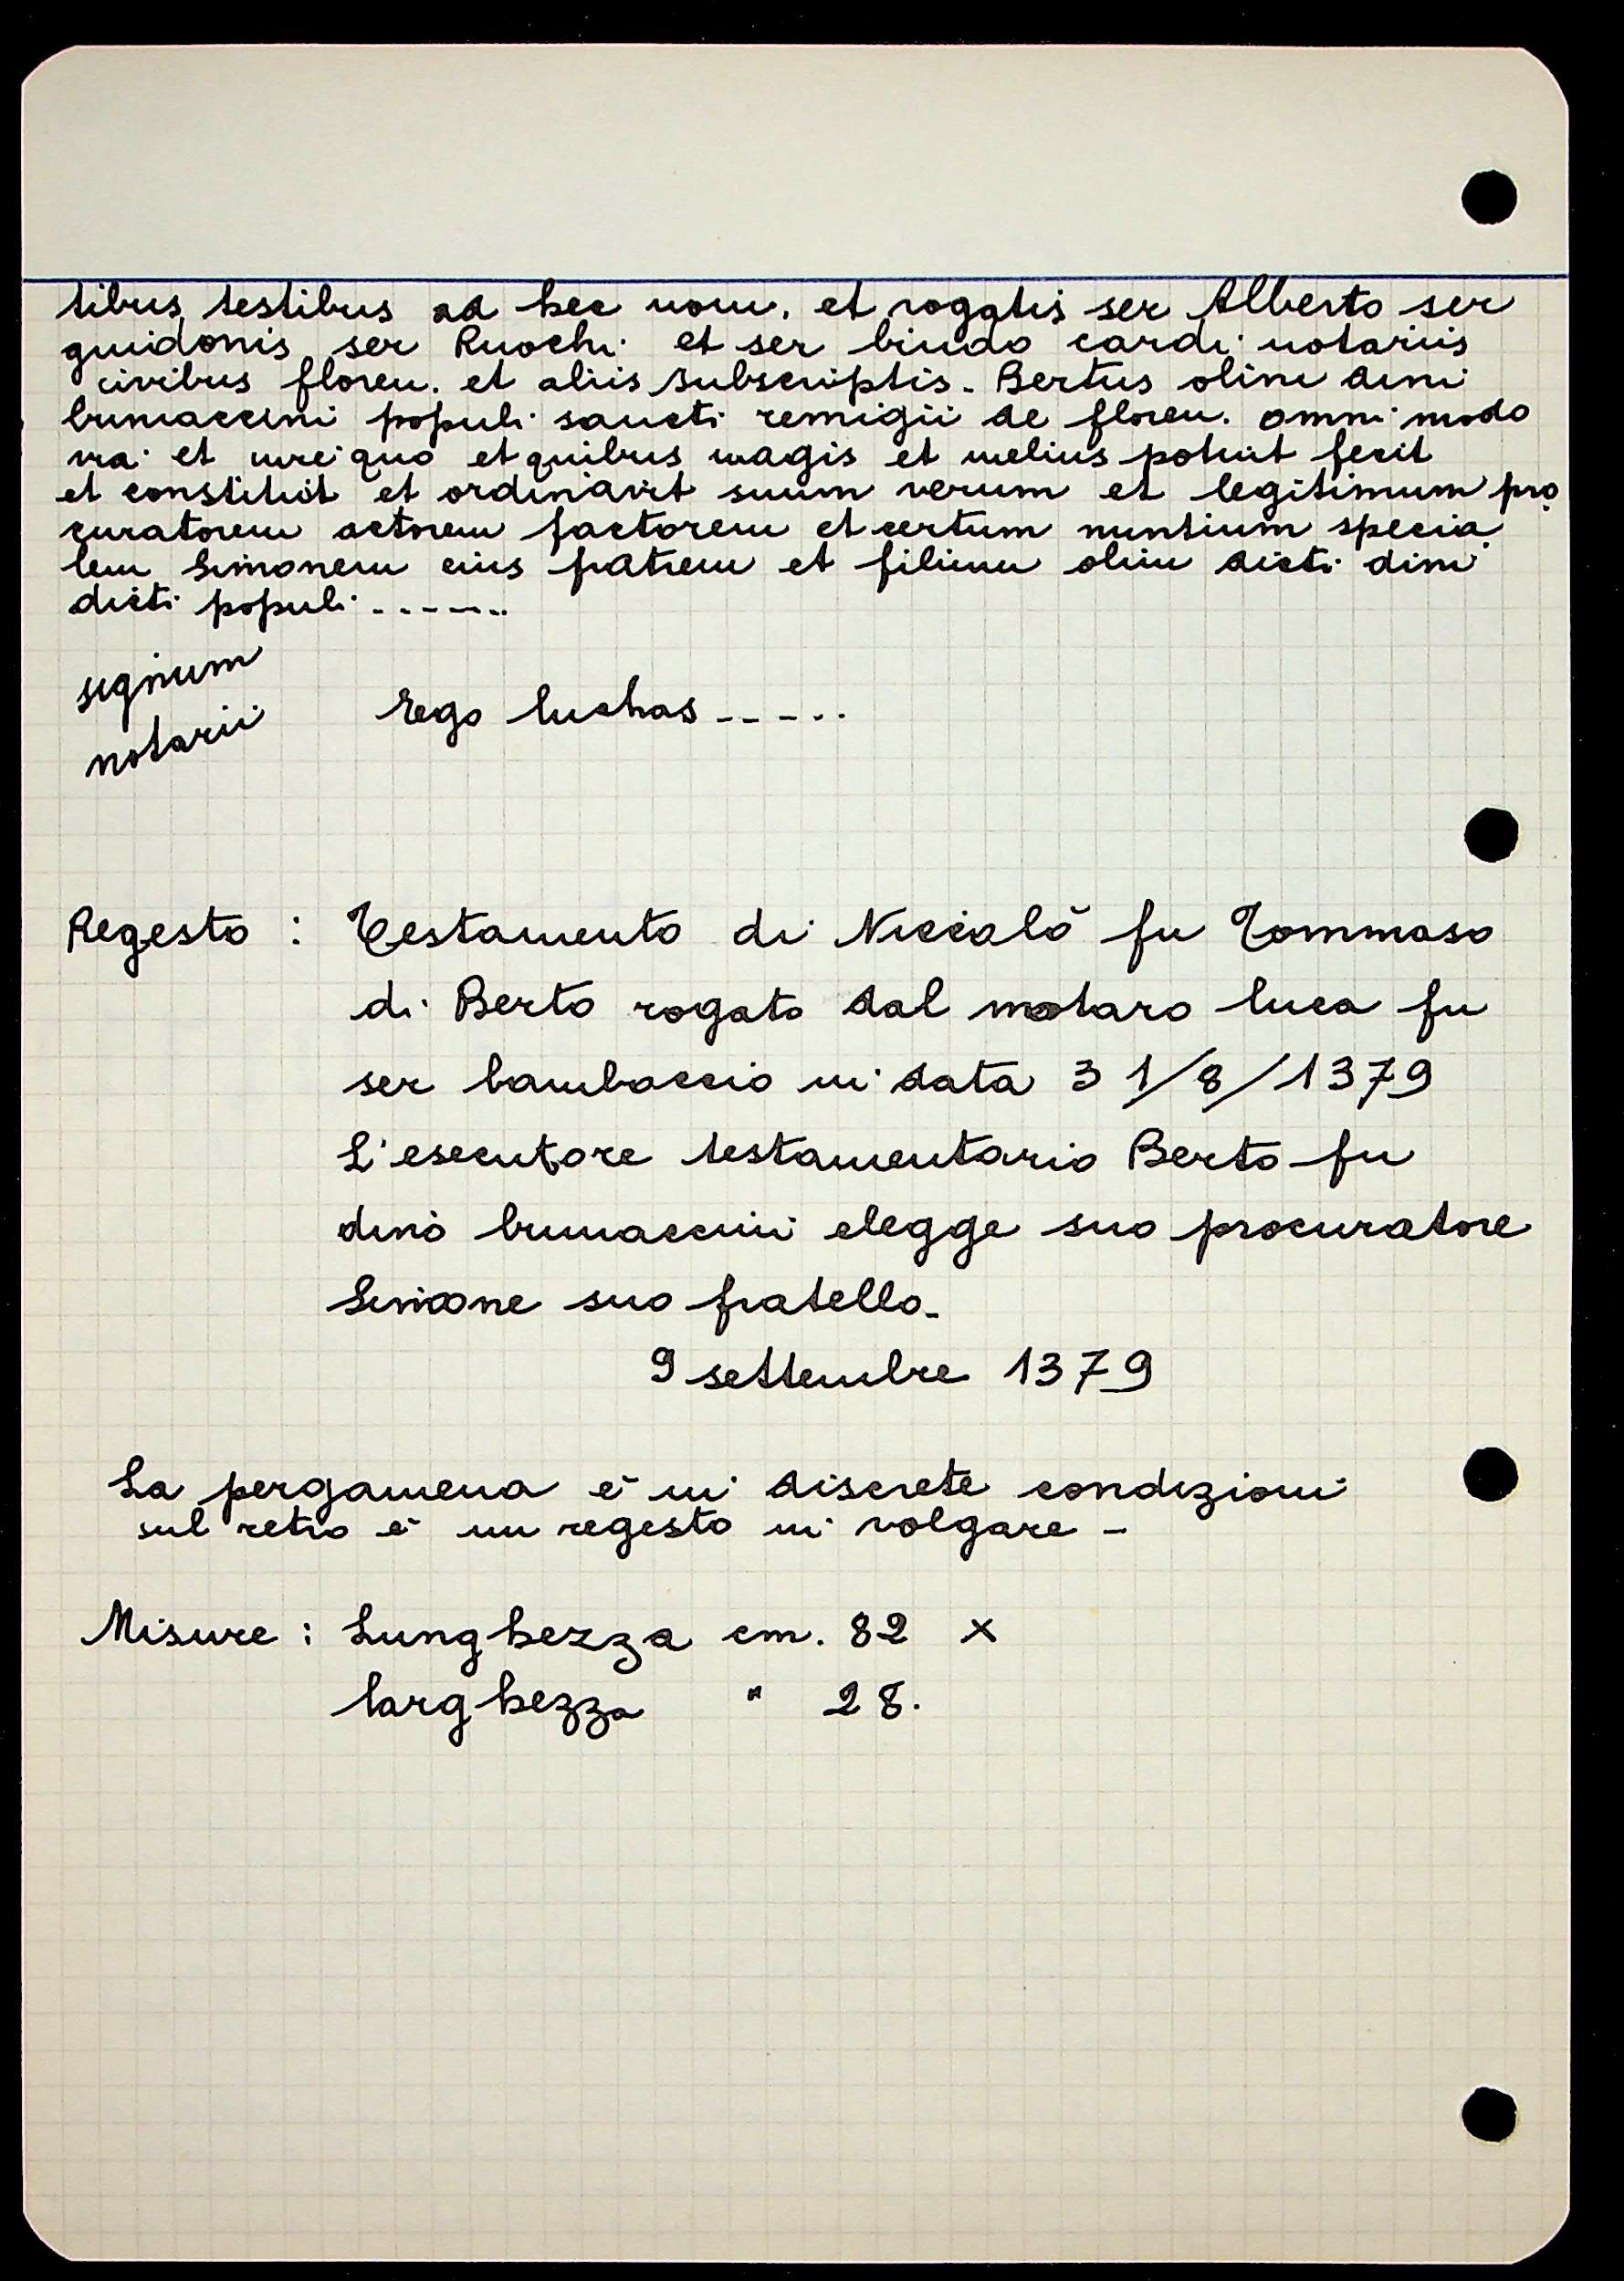 tibus testibus ad hec nom. et rogatis ser Alberto ser
guidonis ser Ruochi et ser bindo cardi notariis
civibus floren. et aliis subscriptis. Bertus olim dini
brunaccini populi sancti remigii de floren. omni modo
via et iure quo et quibus magis et melius potuit fecit
et constituit et ordinavit suum verum et legitimum pro
curatorem actorem factorem et certum nuntium specia
lem Simonem eius fratrem et filium olim dicti dini
dicti populi .......
signum
notarii
Ego luchas .....
Regesto : Testamento di Niccolò fu Tommaso
di Berto rogato dal notaro luca fu
ser bambaccio in data 31/8/1379
L'esecutore testamentario Berto fu
dino brunaccini elegge suo procuratore
Simone suo fratello.
9 settembre 1379
La pergamena è in discrete condizioni
sul retro è un regesto in volgare -
Misure : Lunghezza cm. 82 x
larghezza " 28.